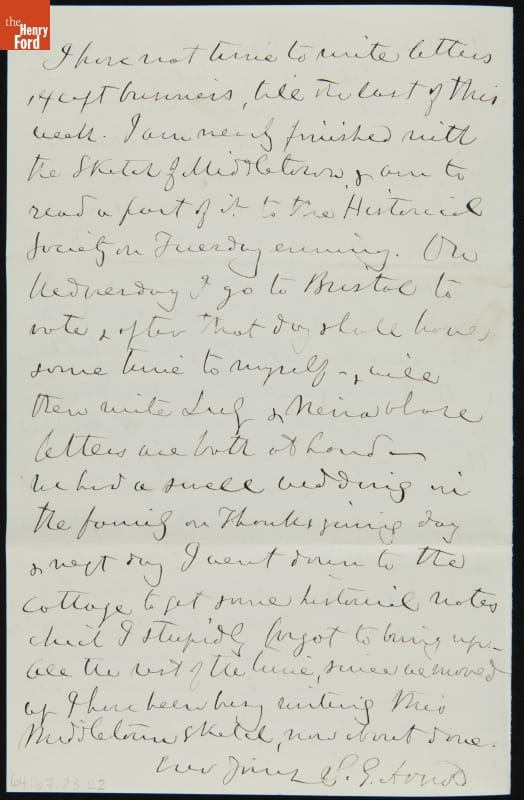 the
Henry
Ford
I have not time to write letters
except business, till the last of this
week. I am nearly finished with
the Sketch of Middletown, & am to
read a part of it to the Historical
Society on Tuesday evening. On
Wednesday I go to Bristol to
vote & after that day shall have
some time to myself - & will
then write & whose
letters are both at hand —
We had a small wedding in
the family on Thanksgiving day
& next day I went down to the
cottage to get some historical notes
which I stupidly forgot to bring up -
All the rest of the time, since we moved
up I have been busy writing this
Middletown sketch, now about done.
Ever Yours S. G. Arnold
64.167.23.22